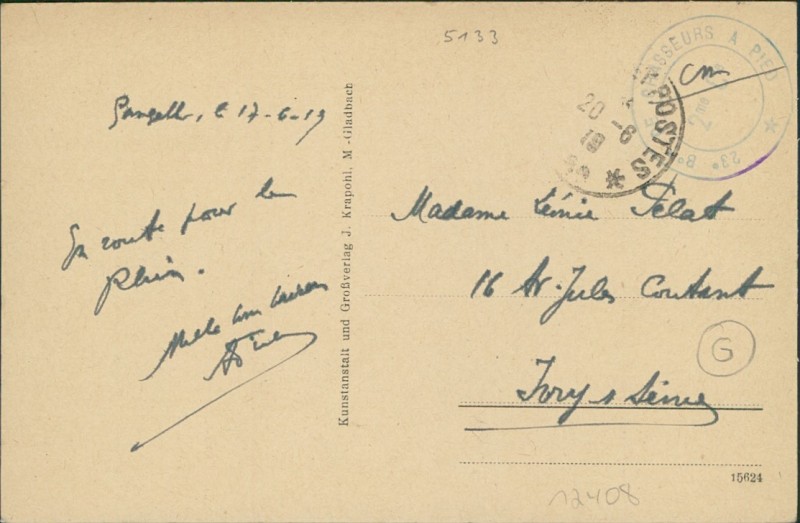 5133
cm
CHASSEURS A PIED
23e Bon
POSTES
20-6
19
le 17-6-19
En route pour le
Rhin.
Mille bons baisers
Madame Léonie Pélat
16 Av. Jules Coutant
Ivry s Seine
G
Kunstanstalt und Großverlag J. Krapohl, M.-Gladbach
15624
12408